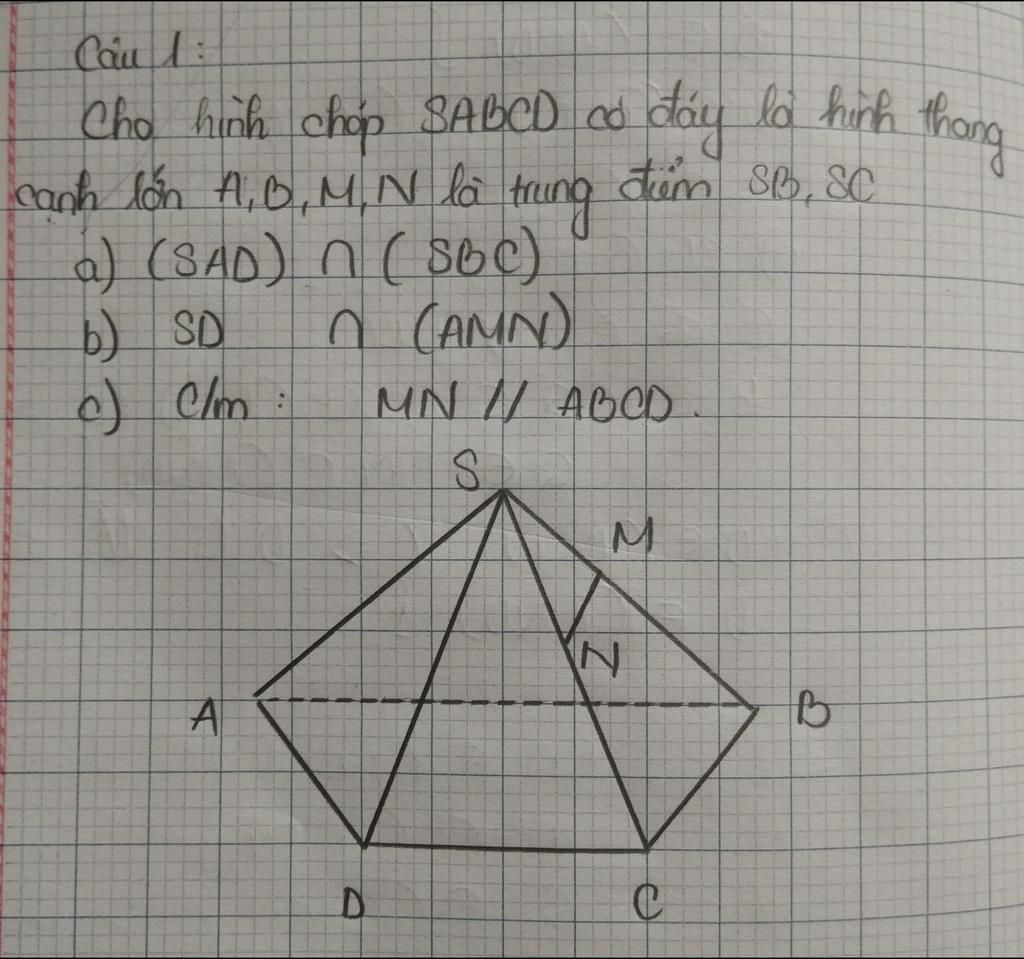 Câu 1:
Cho hình chóp SABCD có đáy là hình thang
cạnh lớn A,B,M,N là trung điểm SB, SC
a) (SAD) ∩ (SBC)
b) SD ∩ (AMN)
c) C/m: MN // ABCD.
S
M
N
A
B
D
C